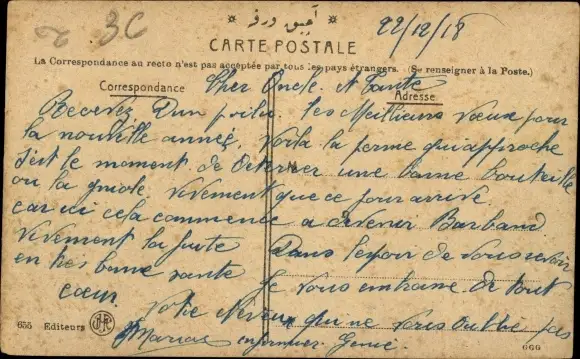 3C
22/12/18
CARTE POSTALE
La Correspondance au recto n'est pas acceptée par tous les pays étrangers. (Se renseigner à la Poste.)
Correspondance
Adresse
Cher Oncle et Tante
Recevez d'un poilu les Meilleurs vœux pour
la nouvelle année. Voila la perme qui approche
s'est le moment de deterrer une bonne bouteille
ou la gniole vivement que ce jour arrive
car ici cela commence a devenir Barband
Vivement la suite Dans l'espoir de vous revoir
en tres bonne sante Je vous embrasse de tout
cœur. Votre Neveu qui ne vous oublie pas
Marius infirmier Genie
655 Editeurs
666